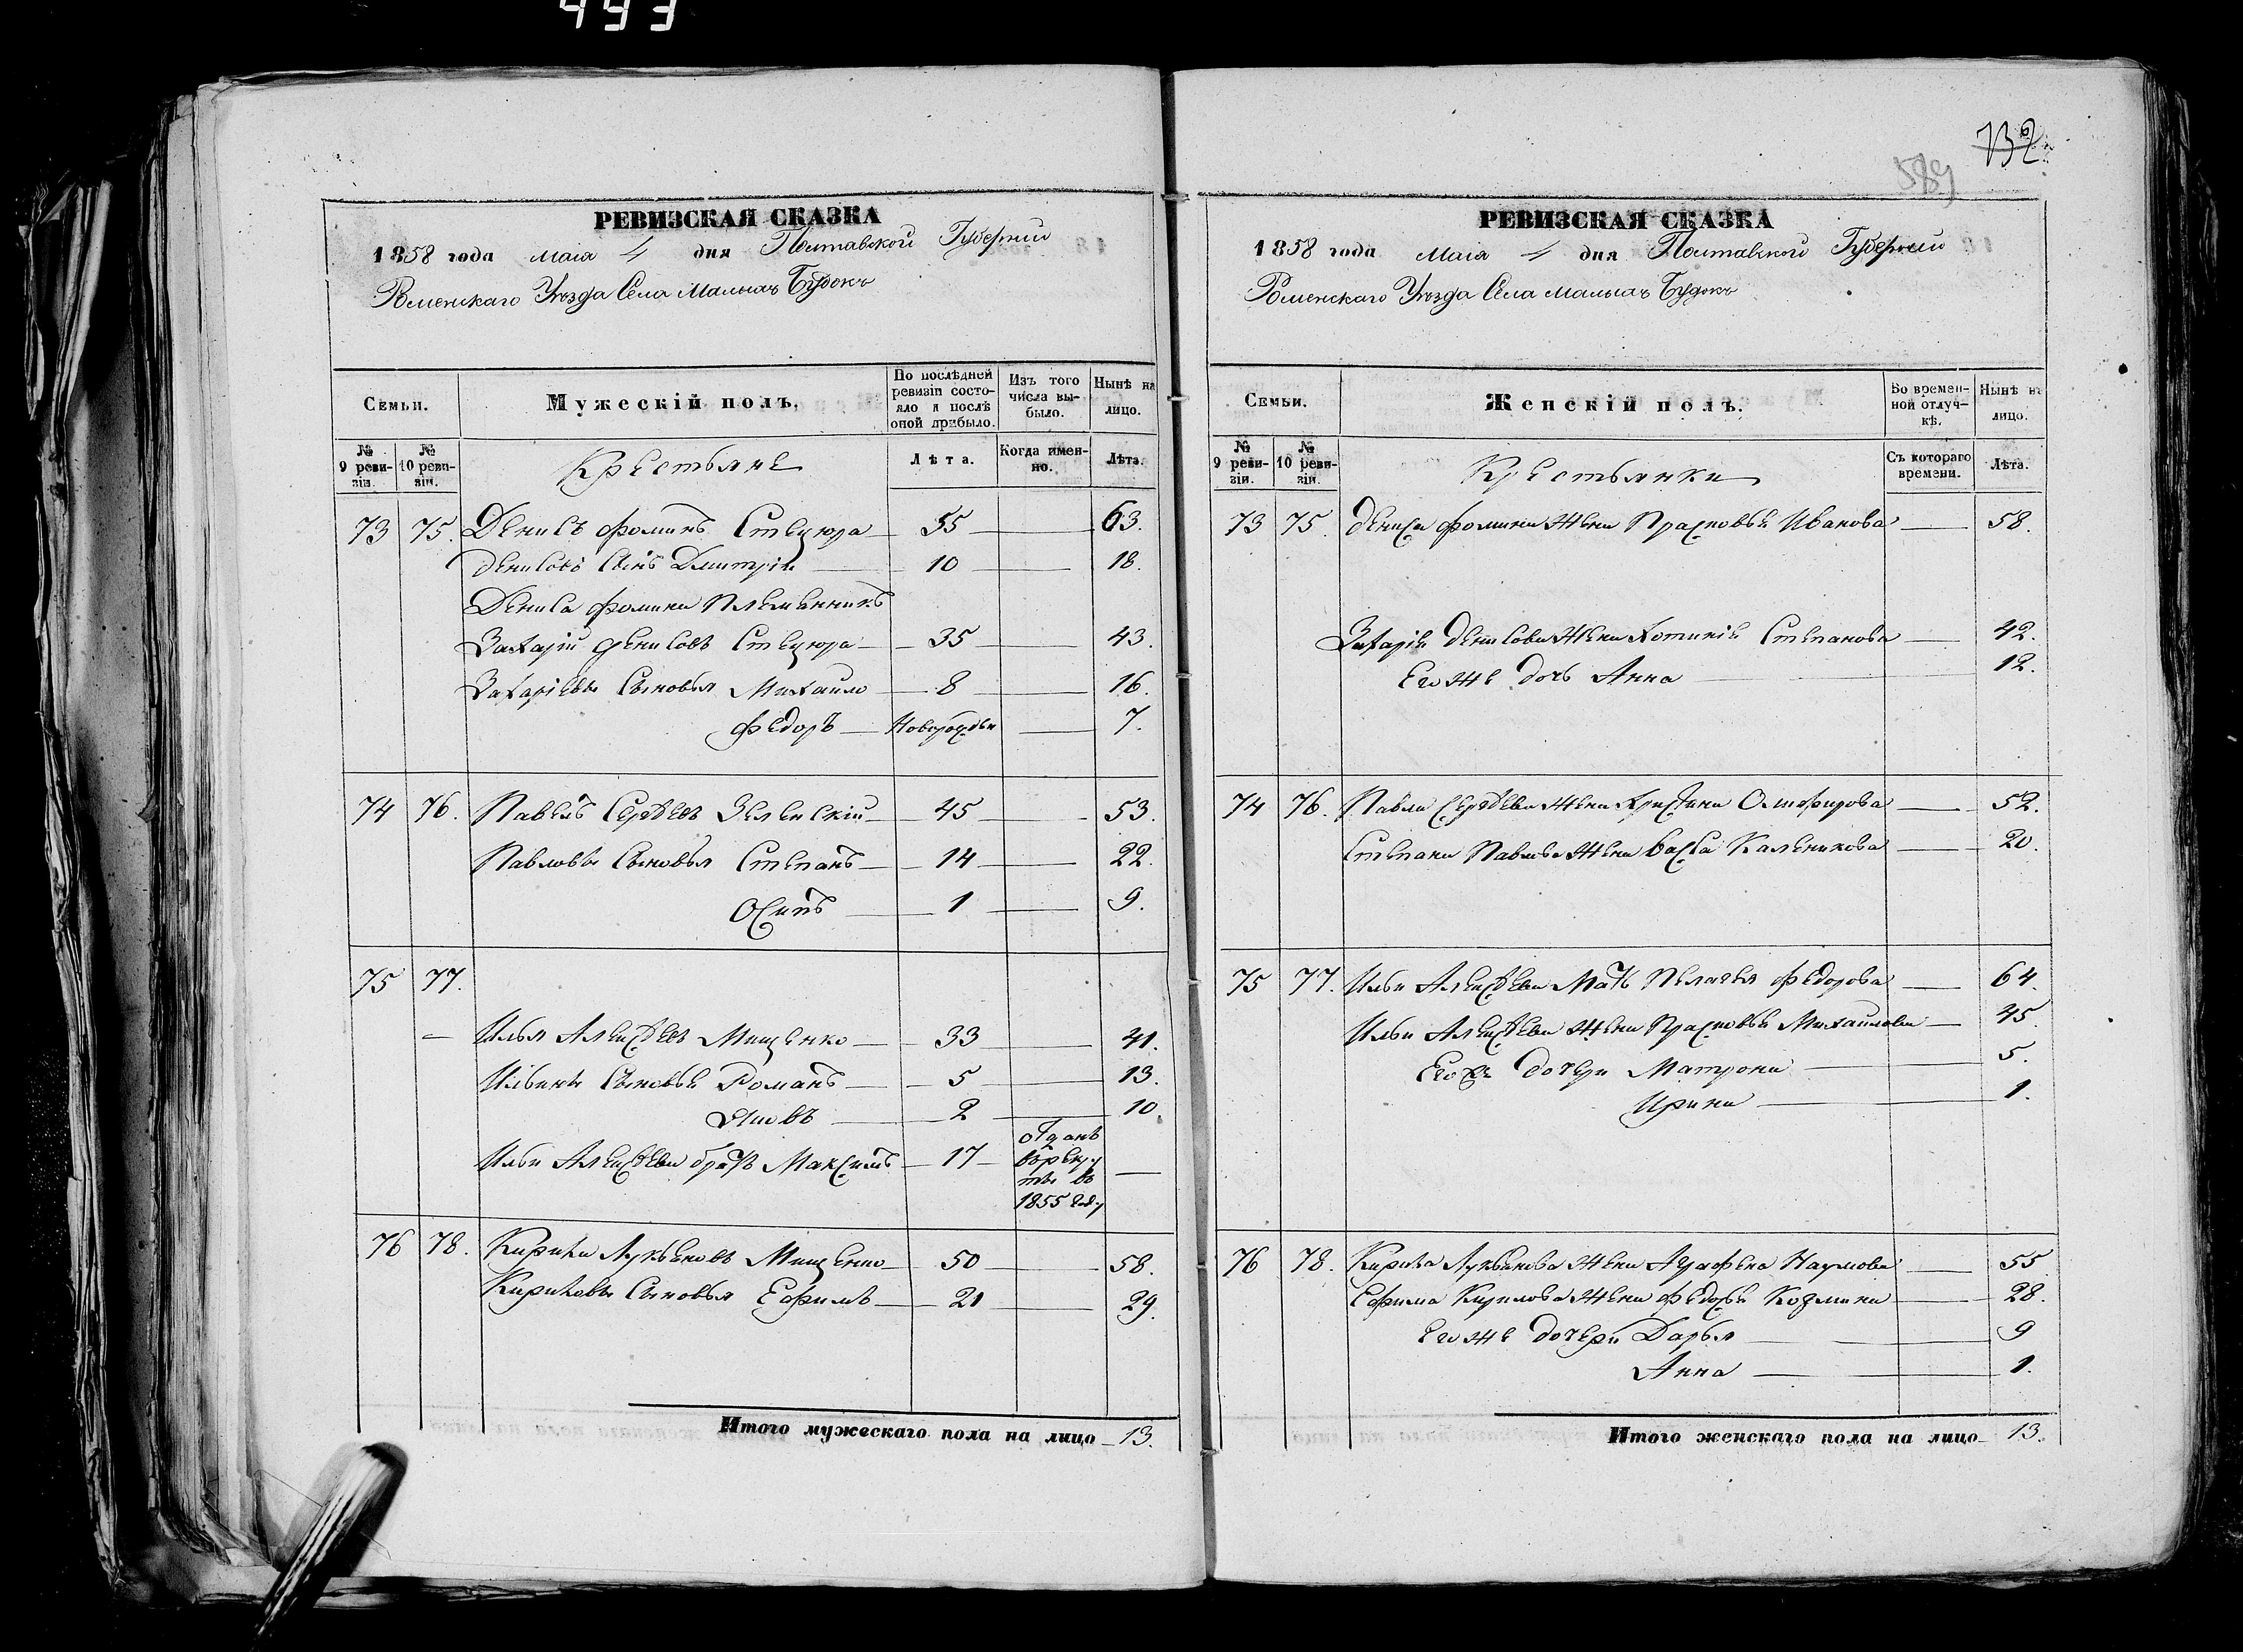 493
РЕВИЗСКАЯ СКАЗКА
1858 года мая 4 дня Полтавской Губернии
Роменскаго Уезда Села Малыхъ Будокъ
Семьи.
Мужескій полъ.
По послѣдней ревизіи состояло и послѣ оной прибыло.
Изъ того числа выбыло.
Нынѣ на лицо.
№ 9 ревизіи.
№ 10 ревизіи.
Крестьяне
Лѣта.
Когда именно.
Лѣта.
73 75. Денисъ Фоминъ Стецюра 55 63.
Денисовъ Сынъ Дмитрій 10 18.
Дениса Фомина Племянникъ
Захарій Денисовъ Стецюра 35 43.
Захаріевы Сыновья Михайло 8 16.
Федоръ Новорожден 7.
74 76. Павелъ Сергѣевъ Зеленскій 45 53.
Павловы Сыновья Степанъ 14 22.
Осипъ 1 9.
75 77.
Илья Алексѣевъ Мищенко 33 41.
Ильины Сыновья Романъ 5 13.
Яковъ 2 10.
Ильи Алексѣева братъ Максимъ 17 отданъ
въ рекру
ты въ
1855 году
76 78. Кирила Лукьяновъ Мищенко 50 58.
Кириловы Сыновья Ефимъ 21 29.
Итого мужескаго пола на лицо 13.
132
589
РЕВИЗСКАЯ СКАЗКА
1858 года мая 4 дня Полтавской Губернии
Роменскаго Уезда Села Малыхъ Будокъ
Семьи.
Женскій полъ.
Во временной отлучкѣ.
Нынѣ на лицо.
№ 9 ревизіи.
№ 10 ревизіи.
Крестьянки
Съ котораго времени.
Лѣта.
73 75. Дениса Фомина жена Прасковья Иванова 58.
Захарія Денисова жена Хотинія Степанова 42.
Его же дочь Анна 12.
74 76. Павла Сергѣева жена Христина Олифирова 52.
Степана Павлова жена Васса Каленикова 20.
75 77. Ильи Алексѣева Мать Пелагея Федорова 64.
Ильи Алексѣева жена Прасковья Михаилова 45.
Его же дочери Матрона 5.
Ирина 1.
76 78. Кирила Лукьянова жена Аграфена Наумова 55
Ефима Кирилова жена Федосья Козмина 28.
Его же дочери Дарья 9
Анна 1.
Итого женскаго пола на лицо 13.